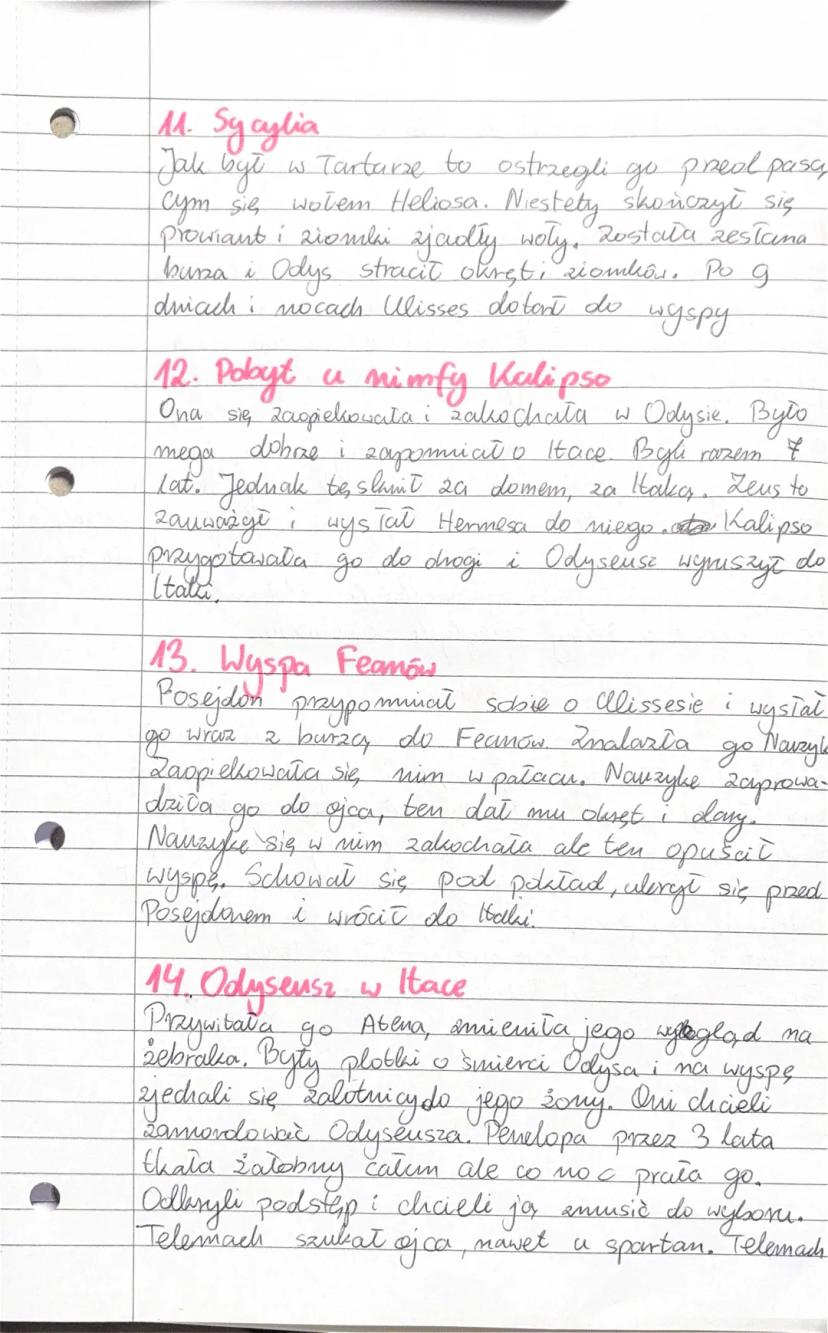 11. Sycylia
Jak był w Tartarze to ostrzegli go przed pasą
cym się wołem Heliosa. Niestety skończył się
prowiant i ziomki zjadły woły. Została zesłana
burza i Odys stracił okręt i ziomków. Po 9
dniach i nocach Ulisses dotarł do wyspy
12. Pobyt u nimfy Kalipso
Ona się zaopiekowała i zakochała w Odysie. Było
mega dobrze i zapomniał o Itace. Byli razem 7
lat. Jednak tęsknił za domem, za Itaką. Zeus to
zauważył i wysłał Hermesa do niego. Kalipso
przygotowała go do drogi i Odyseusz wyruszył do
Itaki.
13. Wyspa Feanów
Posejdon przypomniał sobie o Ulissesie i wysłał
go wraz z burzą do Feanów. Znalazła go Nauzyk
Zaopiekowała się nim w pałacu. Nauzyke zaprowa-
dziła go do ojca, ten dał mu okręt i dary.
Nauzyke się w nim zakochała ale ten opuścił
wyspę. Schował się pod pokład, ukrył się przed
Posejdonem i wrócił do Itaki.
14. Odyseusz w Itace
Przywitała go Atena, zmieniła jego wygląd na
żebraka. Były plotki o śmierci Odysa i na wyspę
zjechali się zalotnicy do jego żony. Oni chcieli
zamordować Odyseusza. Penelopa przez 3 lata
tkała żałobny całun ale co noc prała go.
Odkryli podstęp i chcieli ją zmusić do wyboru.
Telemach szukał ojca, nawet u spartan. Telemach